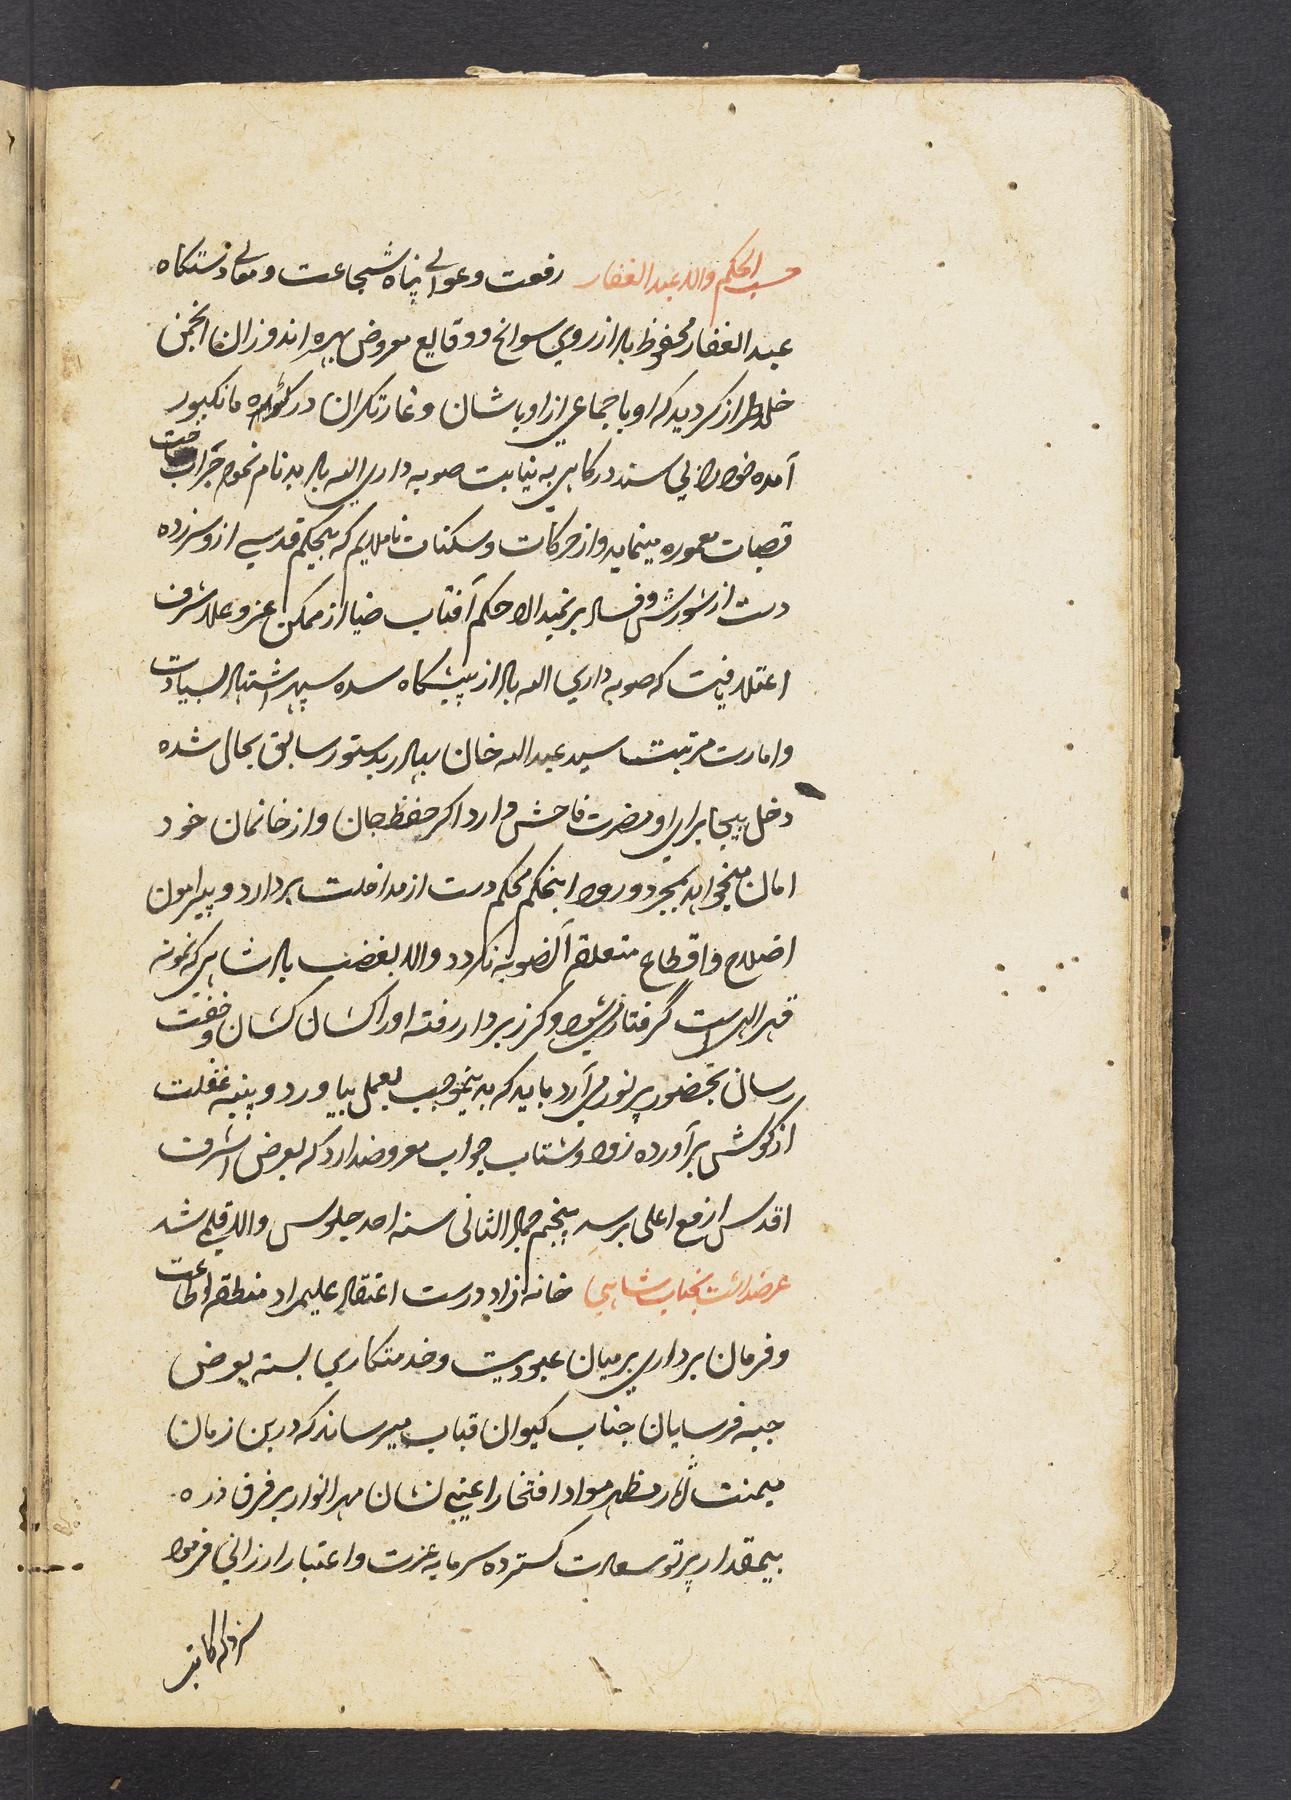 حسب الحکم والا بعبد الغفار رفعت و عوالی پناه شجاعت و معالی دستکاه
عبد الغفار محفوظ باد از روی سوانح و وقایع معروض بهره اندوزان انجمن
خلد طراز کردید که او با جماعی از اوباشان و غارتکران در کوره مانکپور
آمده خود را بی سند درکاهی به نیابت صوبه داری اله باد بدنام نموده خراب ساخت
قصبات معموره مینماید و از حرکات و سکنات ناملایم که بحکم قدسی ازو سر زده
دست از شورش و فساد بر نمیدارد حکم آفتاب ضیا از ممکن عز و علا شرف
اعتلا یافت که صوبه داری اله باد از پیشکاه سده سپهر اشتباه بسیادت
و امارت مرتبت سید عبد اله خان بهادر بدستور سابق بحال شده
دخل بیجا برای او مضرت فاحش دارد اکر حفظ جان و از خانمان خود
امان میخواهد بمجرد ورود اینحکم محکم دست از مداخلت بردارد و پیرامون
اضلاع و اقطاع متعلقه آنصوبه نکردد والا بغضب بادشاهی که نمونه
قهر الهی است گرفتار میشود و کرز بردار رفته او را کشان کشان و خفت
رسان بحضور پرنور می آرد باید که بدینموجب بعمل بیاورد و پنبه غفلت
از کوش برآورده زود و شتاب جواب معروضدارد که بعرض اشرف
اقدس ارفع اعلی برسد پنجم جماد الثانی سنه احد جلوس والا قلمی شد
عرضداشت بجناب شاهی خانه زاد درست اعتقاد علیمراد منطقه اطاعت
و فرمان برداری بر میان عبودیت و خدمتکاری بسته بعرض
جبه فرسایان جناب کیوان قباب میرساند که درین زمان
میمنت نثار مظهر مواد افتخار اعنی نشان مهر انوار بر فرق ذره
بیمقدار پرتو سعادت کسترده سرمایه عزت و اعتبار ارزانی فرمود